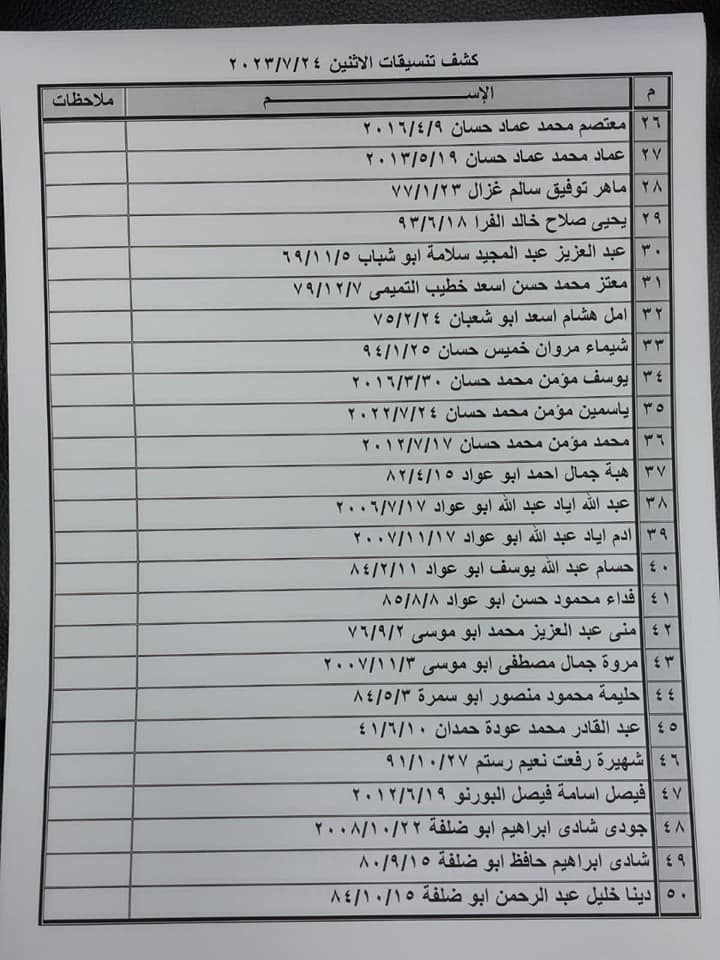 كشف تنسيقات الاثنين ٢٠٢٣/٧/٢٤
م الإســـم ملاحظات
٢٦ معتصم محمد عماد حسان ٢٠١٦/٤/٩
٢٧ عماد محمد عماد حسان ٢٠١٣/٥/١٩
٢٨ ماهر توفيق سالم غزال ٧٧/١/٢٣
٢٩ يحيى صلاح خالد الفرا ٩٣/٦/١٨
٣٠ عبد العزيز عبد المجيد سلامة ابو شباب ٦٩/١١/٥
٣١ معتز محمد حسن اسعد خطيب التميمى ٧٩/١٢/٧
٣٢ امل هشام اسعد ابو شعبان ٧٥/٢/٢٤
٣٣ شيماء مروان خميس حسان ٩٤/١/٢٥
٣٤ يوسف مؤمن محمد حسان ٢٠١٦/٣/٣٠
٣٥ ياسمين مؤمن محمد حسان ٢٠٢٢/٧/٢٤
٣٦ محمد مؤمن محمد حسان ٢٠١٢/٧/١٧
٣٧ هبة جمال احمد ابو عواد ٨٢/٤/١٥
٣٨ عبد الله اياد عبد الله ابو عواد ٢٠٠٦/٧/١٧
٣٩ ادم اياد عبد الله ابو عواد ٢٠٠٧/١١/١٧
٤٠ حسام عبد الله يوسف ابو عواد ٨٤/٢/١١
٤١ فداء محمود حسن ابو عواد ٨٥/٨/٨
٤٢ منى عبد العزيز محمد ابو موسى ٧٦/٩/٢
٤٣ مروة جمال مصطفى ابو موسى ٢٠٠٧/١١/٣
٤٤ حليمة محمود منصور ابو سمرة ٨٤/٥/٣
٤٥ عبد القادر محمد عودة حمدان ٤١/٦/١٠
٤٦ شهيرة رفعت نعيم رستم ٩١/١٠/٢٧
٤٧ فيصل اسامة فيصل البورنو ٢٠١٢/٦/١٩
٤٨ جودى شادى ابراهيم ابو ضلفة ٢٠٠٨/١٠/٢٢
٤٩ شادى ابراهيم حافظ ابو ضلفة ٨٠/٩/١٥
٥٠ دينا خليل عبد الرحمن ابو ضلفة ٨٤/١٠/١٥